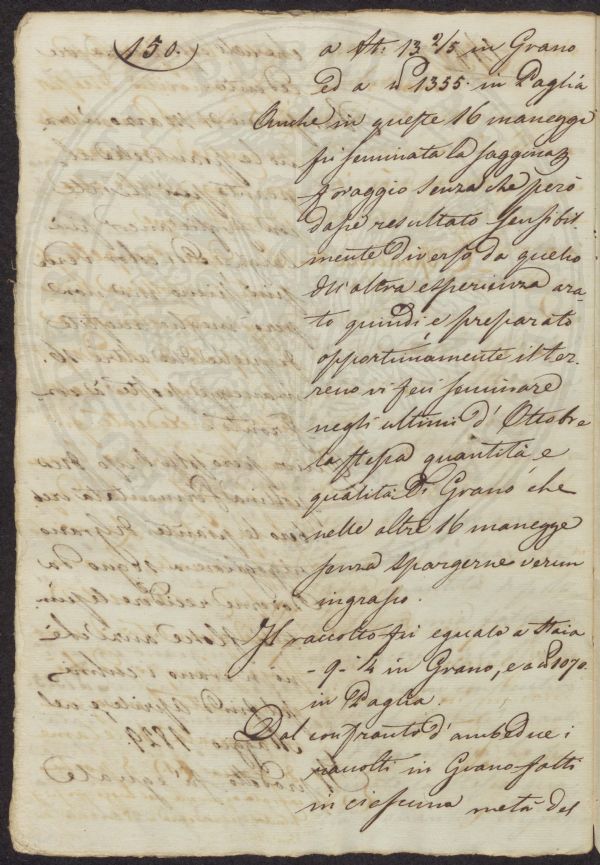 150.
a St: 13 2/5 in Grano
Ed a ℔ 1355. in Paglia
Anche in queste 16 maneggie
fu seminata la saggina p
foraggio senza che però
dasse resultato sensibil-
mente diverso da quello
dell'altra esperienza ara-
to quindi e preparato
opportunamente il ter-
reno vi feci seminare
negli ultimi d'Ottobre
la stessa quantità, e
qualità di Grano che
nelle altre 16 manegge
senza spargerne verun
ingrasso.
Il raccolto fu eguale a Staia
- 9 - ¼ in Grano, e a ℔ 1070.
in Paglia.
Dal confronto d'ambedue i
raccolti in Grano fatti
in ciascuna metà del